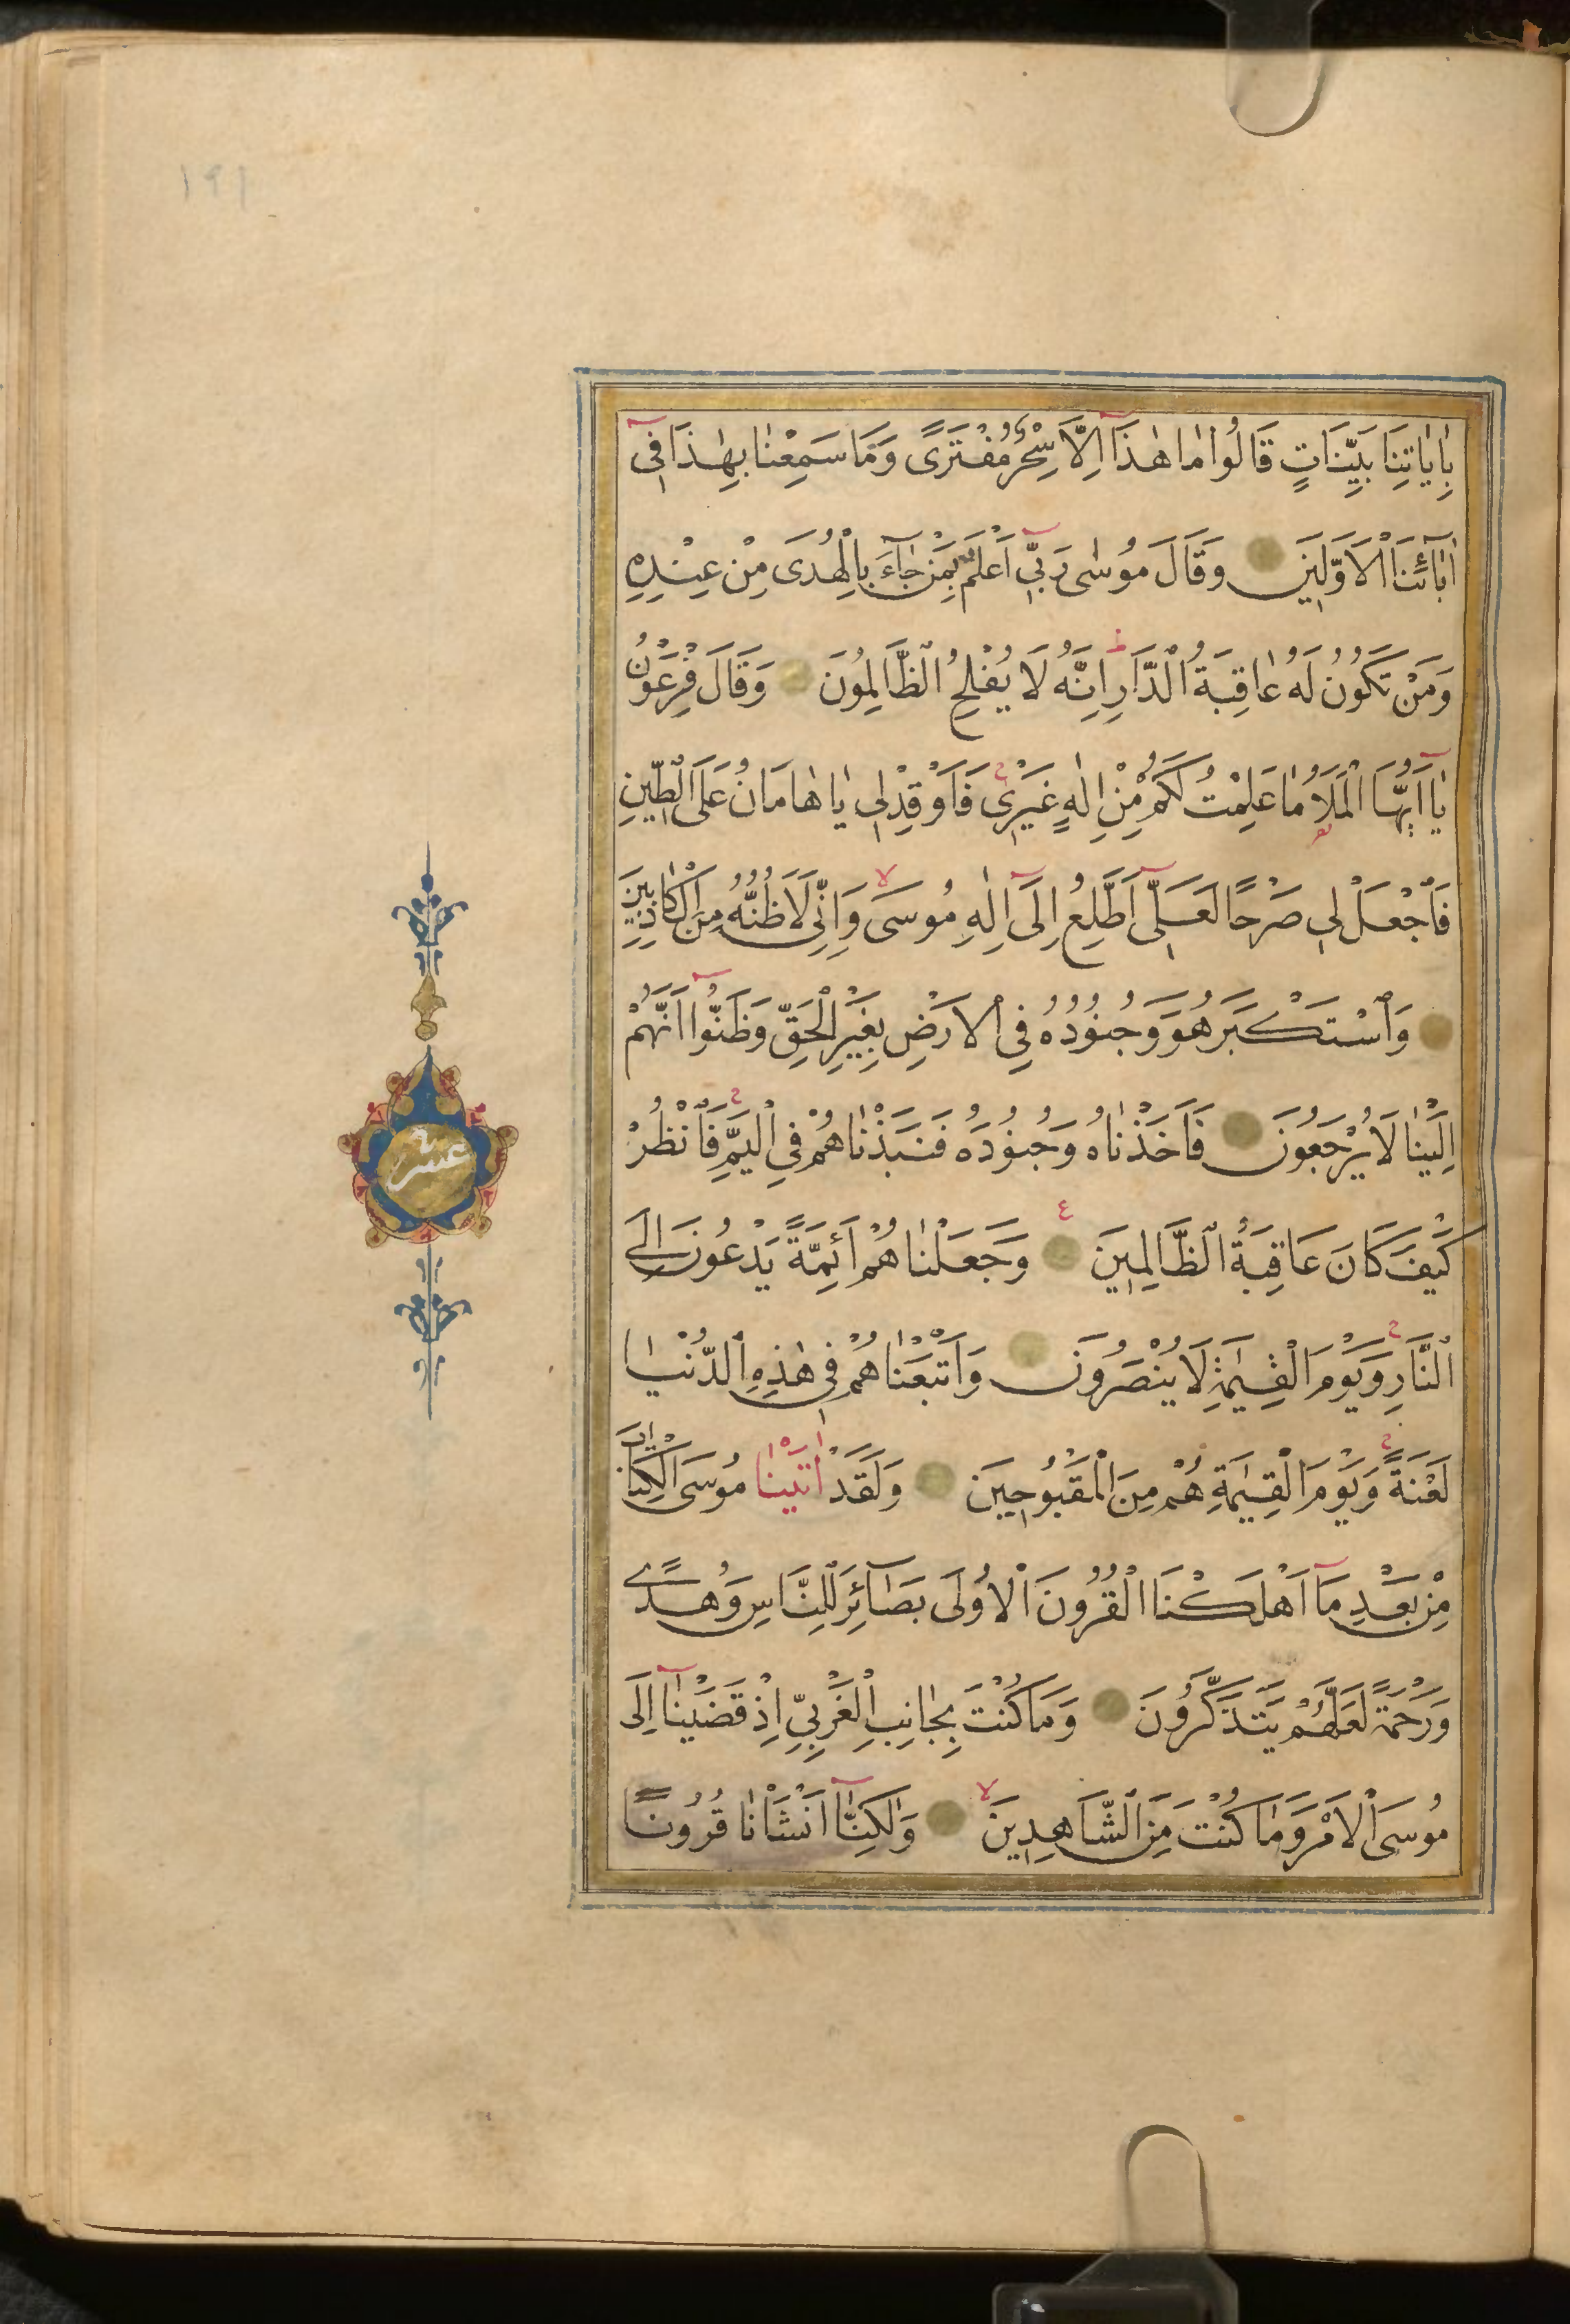 ١٩١
بِاٰيَاتِنَا بَيِّنَاتٍ قَالُوا مٰا هٰذَا اِلَّا سِحْرٌ مُفْتَرًى وَمَا سَمِعْنٰا بِهٰذَا فِى
اٰبَآئِنَا الْاَوَّلِينَ وَقَالَ مُوسٰى رَبِّى اَعْلَمُ بِمَنْ جٰآءَ بِالْهُدَى مِنْ عِنْدِهِ
وَمَنْ تَكُونُ لَهُ عٰاقِبَةُ الدَّارِ اِنَّهُ لَا يُفْلِحُ الظَّالِمُونَ وَقَالَ فِرْعَوْنُ
يٰا اَيُّهَا الْمَلَاُ مٰا عَلِمْتُ لَكُمْ مِنْ اِلٰهٍ غَيْرِى فَاَوْقِدْ لِى يٰا هٰامَانُ عَلَى الطِّينِ
فَاجْعَلْ لِى صَرْحًا لَعَلِّى اَطَّلِعُ اِلَى اِلٰهِ مُوسَى وَاِنِّى لَاَظُنُّهُ مِنَ الْكَاذِبِينَ
وَاسْتَكْبَرَ هُوَ وَجُنُودُهُ فِى الْاَرْضِ بِغَيْرِ الْحَقِّ وَظَنُّوا اَنَّهُمْ
اِلَيْنٰا لَا يُرْجَعُونَ فَاَخَذْنٰاهُ وَجُنُودَهُ فَنَبَذْنٰاهُمْ فِى الْيَمِّ فَانْظُرْ
كَيْفَ كَانَ عَاقِبَةُ الظَّالِمِينَ وَجَعَلْنٰاهُمْ اَئِمَّةً يَدْعُونَ اِلَى
النَّارِ وَيَوْمَ الْقِيٰمَةِ لَا يُنْصَرُونَ وَاَتْبَعْنٰاهُمْ فِى هٰذِهِ الدُّنْيٰا
لَعْنَةً وَيَوْمَ الْقِيٰمَةِ هُمْ مِنَ الْمَقْبُوحِينَ وَلَقَدْ اٰتَيْنٰا مُوسَى الْكِتَابَ
مِنْ بَعْدِ مَا اَهْلَكْنَا الْقُرُونَ الْاُولَى بَصَآئِرَ لِلنَّاسِ وَهُدًى
وَرَحْمَةً لَعَلَّهُمْ يَتَذَكَّرُونَ وَمَا كُنْتَ بِجٰانِبِ الْغَرْبِىِّ اِذْ قَضَيْنٰا اِلَى
مُوسَى الْاَمْرَ وَمٰا كُنْتَ مِنَ الشَّاهِدِينَ وَلٰكِنَّا اَنْشَأْنٰا قُرُونًا
عشر